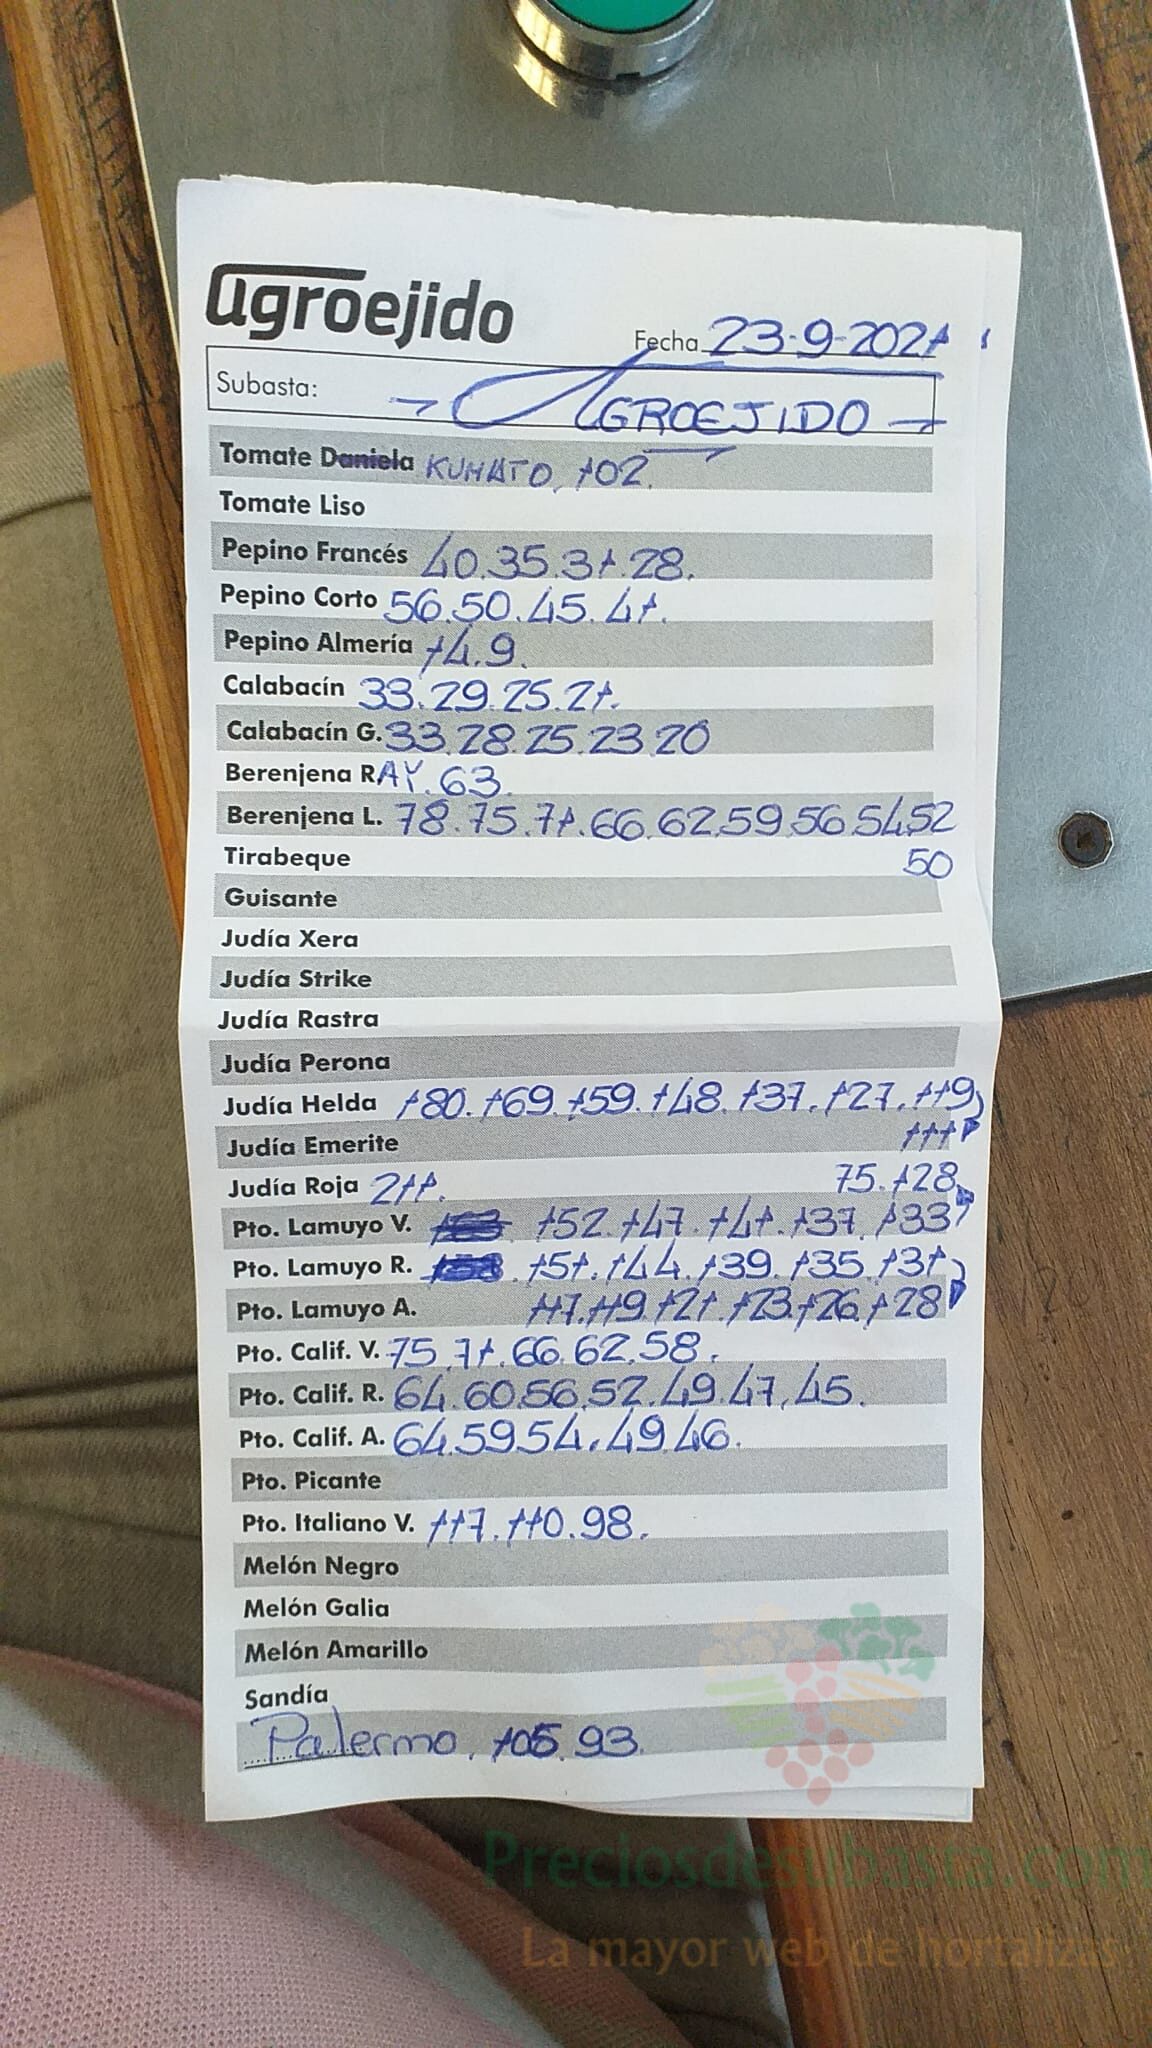 agroejido
Fecha 23-9-2021
Subasta: AGROEJIDO
Tomate Daniela KUMATO. 102.
Tomate Liso
Pepino Francés 40.35.31.28.
Pepino Corto 56.50.45.41.
Pepino Almería 14.9.
Calabacín 33.29.25.21.
Calabacín G. 33.28.25.23.20
Berenjena RAY. 63.
Berenjena L. 78.75.71.66.62.59.56.54.52
Tirabeque 50
Guisante
Judía Xera
Judía Strike
Judía Rastra
Judía Perona
Judía Helda 180.169.159.148.137.127.119
Judía Emerite 111
Judía Roja 211. 75.128
Pto. Lamuyo V. 152.147.141.137.133
Pto. Lamuyo R. 151.144.139.135.131
Pto. Lamuyo A. 117.119.121.123.126.128
Pto. Calif. V. 75.71.66.62.58.
Pto. Calif. R. 64.60.56.52.49.47.45.
Pto. Calif. A. 64.59.54.49.46.
Pto. Picante
Pto. Italiano V. 117.110.98.
Melón Negro
Melón Galia
Melón Amarillo
Sandía
Palermo. 105.93.
Preciosdesubasta.com
La mayor web de hortalizas